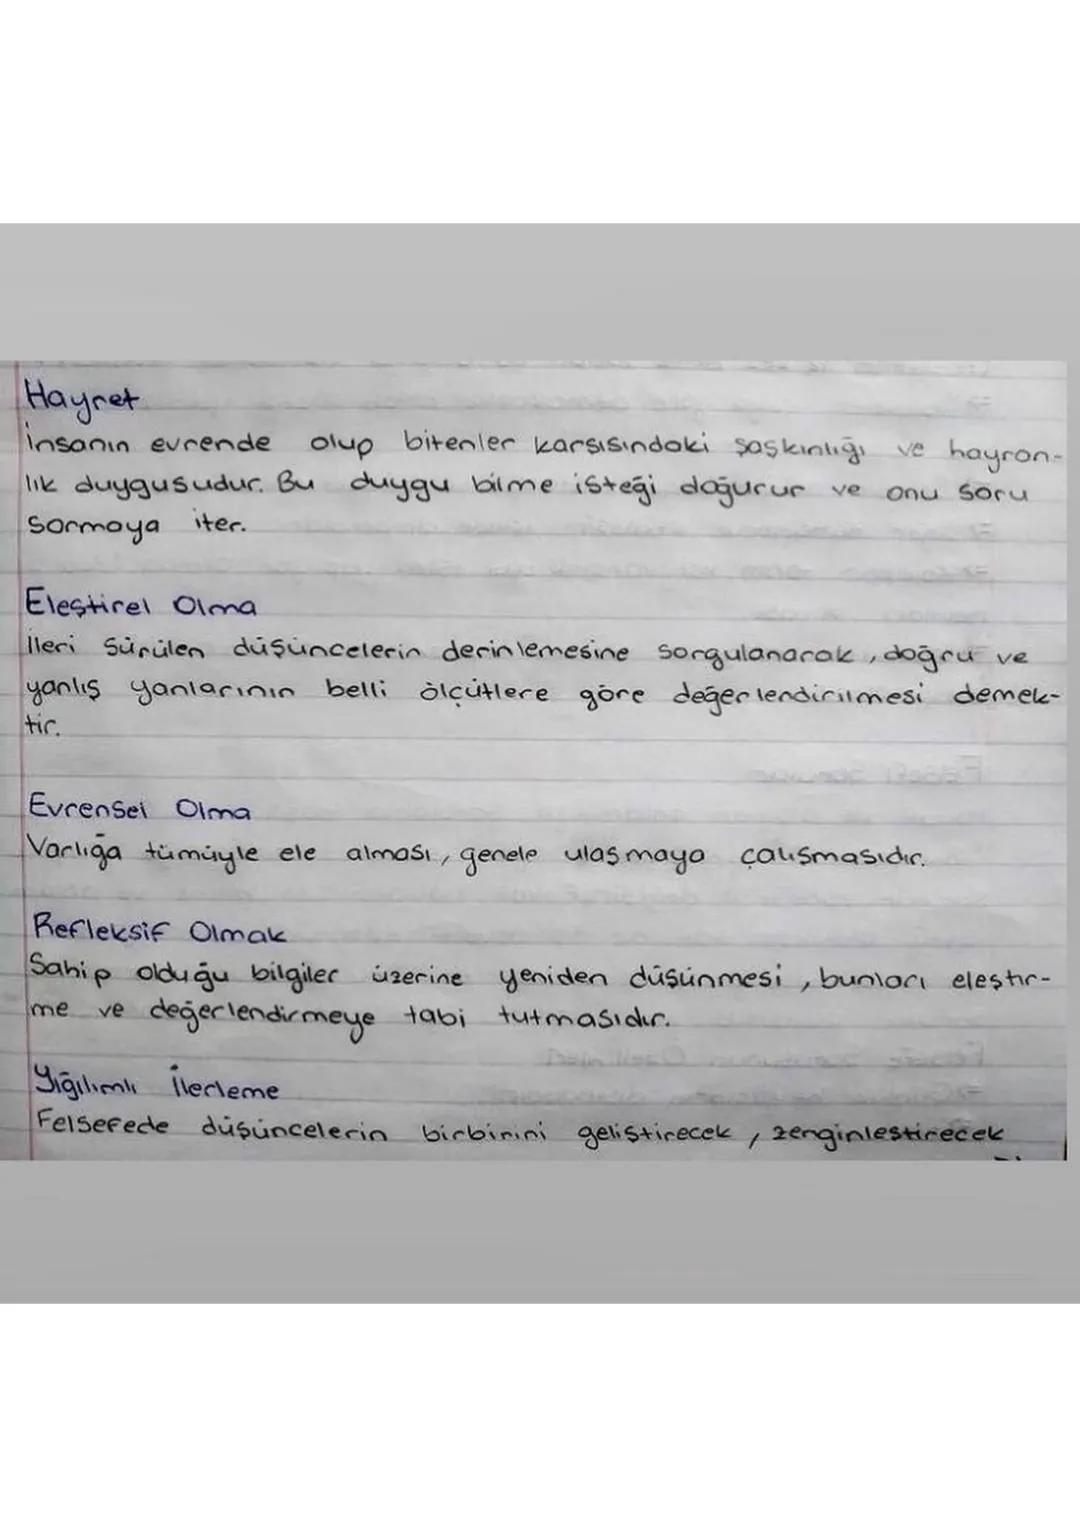 Hayret
İnsanın evrende olup bitenler karşısındaki şaşkınlığı ve hayran-
lık duygusudur. Bu duygu bilme isteği doğurur ve onu soru
sormaya iter.
Eleştirel Olma
İleri sürülen düşüncelerin derinlemesine sorgulanarak, doğru ve
yanlış yanlarının belli ölçütlere göre değerlendirilmesi demek-
tir.
Evrensel Olma
Varlığa tümüyle ele alması, genele ulaşmaya çalışmasıdır.
Refleksif Olmak
Sahip olduğu bilgiler üzerine yeniden düşünmesi, bunları eleştir-
me ve değerlendirmeye tabi tutmasıdır.
Yığılımlı İlerleme
Felsefede düşüncelerin birbirini geliştirecek, zenginleştirecek